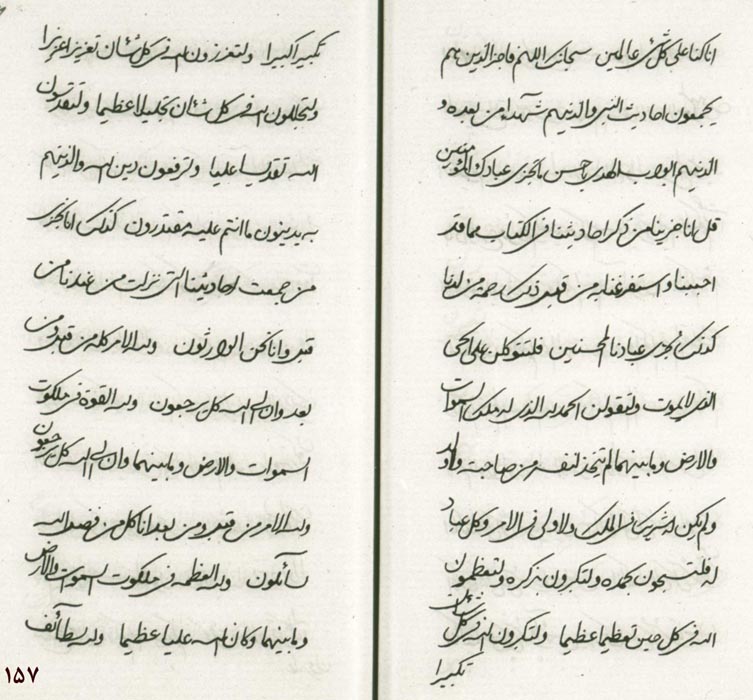 اناکنا علی کل شیء عالمین سبحانک اللهم فاجز الذین هم
یجمعون احادیث النبی والذینهم شهداء من بعده و
الذینهم ابواب الهدی باحسن ما تجزی عبادک المؤمنین
قل انا جزینا من ذکر احادیثنا فی الکتاب مما قد
احببنا و استغفرنا له من قبل ذلک رحمة من لدنا
کذلک نجزی عبادنا المحسنین فلتتوکلن علی الحی
الذی لایموت ولتقولن الحمد لله الذی له ملک السموات
والارض و مابینهما لم یتخذ لنفسه من صاحبة ولا ولد
ولم یکن له شریک فی الملک ولا ولی فی الامر وکل عباد
له فلتسبحون بحمده ولتکبرون بذکره ولتعظمون
الله فی کل حین تعظیما عظیما ولتکبرون الله فی کل شأن
تکبیرا
تکبیرا کبیرا ولتعززون الله فی کل شأن تعزیزا عزیزا
ولتجللون الله فی کل شأن تجلیلا عظیما ولتقدسون
الله تقدیسا علیا ولترفعون دین الله والذینهم
به یدینون ما انتم علیه مقتدرون کذلک انا نجزی
من جمعت احادیثنا التی نزلت من عندنا من
قبل وانا نحن الوارثون ولله الامر کله من قبل ومن
بعد وان الی الله کل یرجعون ولله القوة فی ملکوت
السموات والارض و مابینهما وان الی الله کل یرجعون
ولله الامر من قبل ومن بعد انا کل من فضل الله
سائلون ولله العظمة فی ملکوت السموات والارض
و مابینهما وکان الله علیا عظیما ولله لطائف
۱۵۷